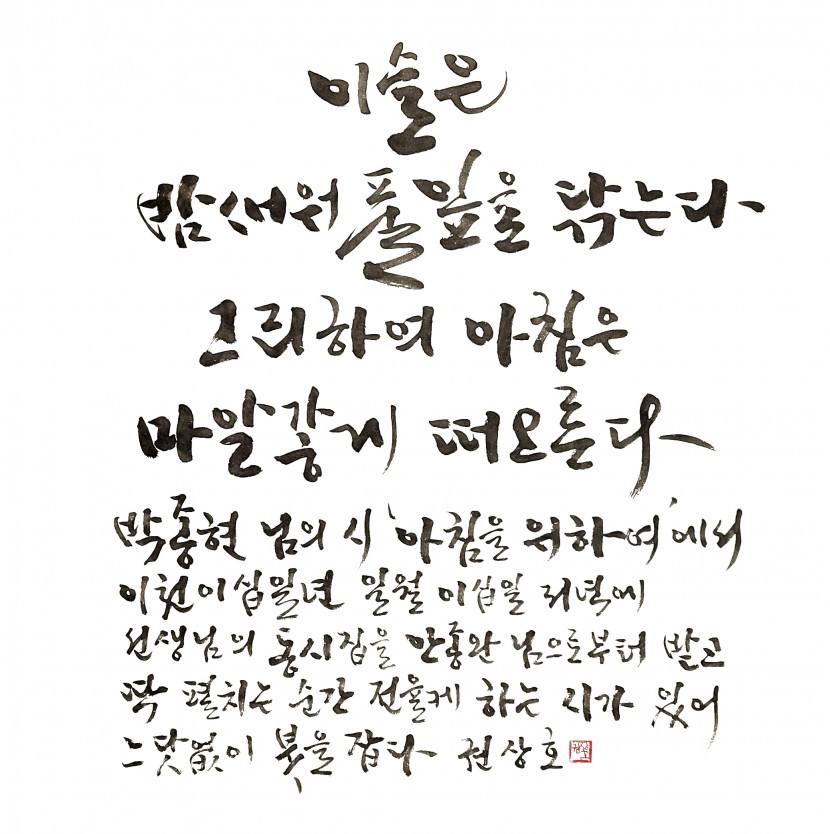 이슬은
밤새워 풀잎을 닦는다
그리하여 아침은
마알갛게 떠오른다
박종현 님의 시 '아침을 위하여'에서
이천이십일년 일월 이십일 저녁에
선생님의 동시집을 안종완 님으로부터 받고
딱 펼치는 순간 전율케 하는 시가 있어
느닷없이 붓을 잡다 권상호